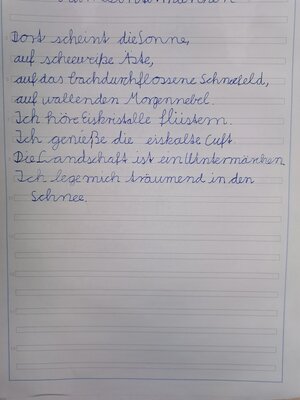 Dort scheint die Sonne,
auf scheeweiße Äste,
auf das bachdurchflossene Schneefeld,
auf wallenden Morgennebel.
Ich höre Eiskristalle flüstern.
Ich genieße die eiskalte Luft.
Die Landschaft ist ein Wintermärchen
Ich lege mich träumend in den
Schnee.